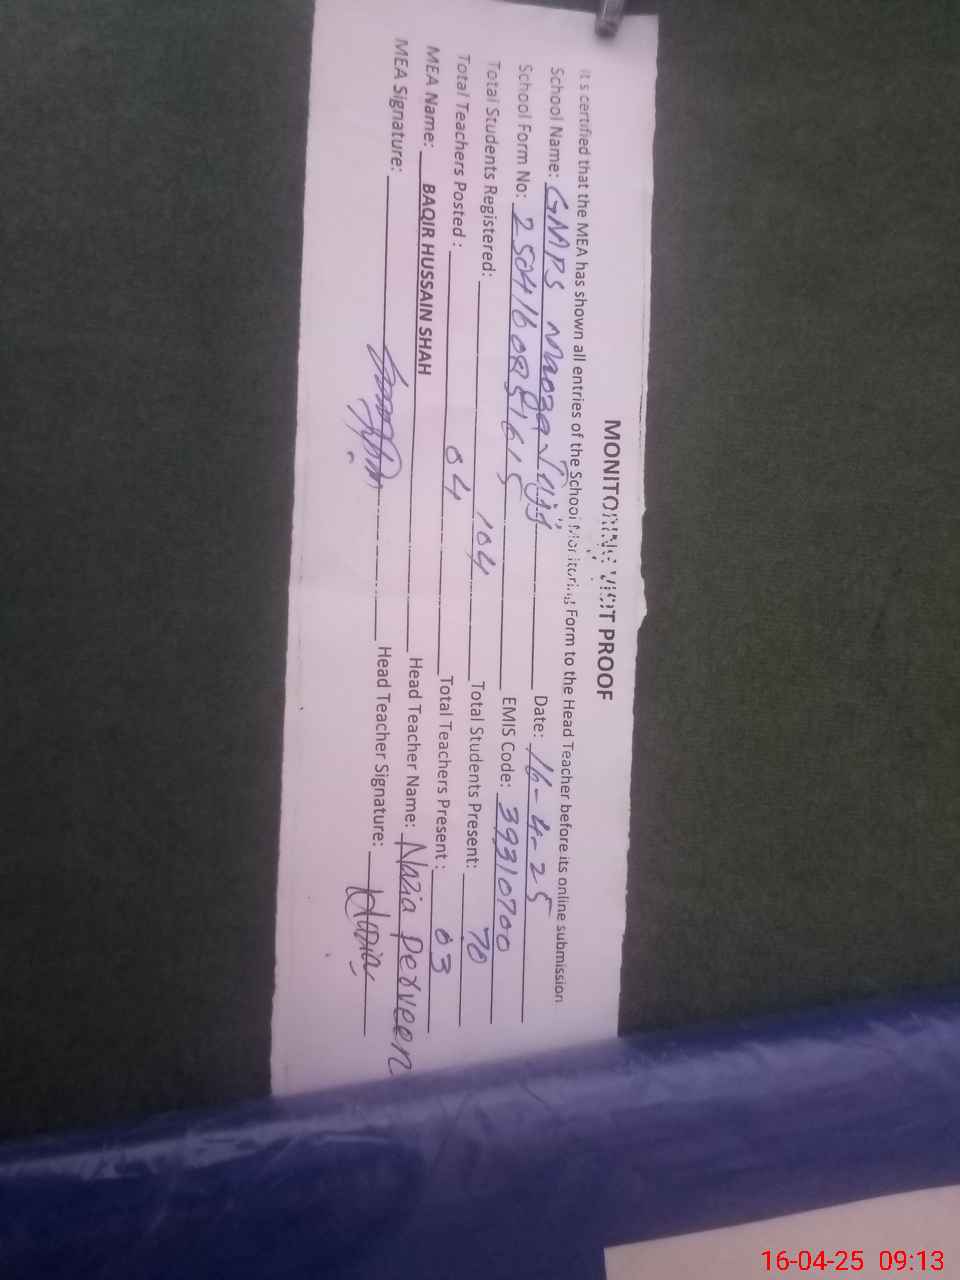 MONITORING VISIT PROOF
It s certified that the MEA has shown all entries of the School Monitoring Form to the Head Teacher before its online submission
School Name: GMPS Date: 16-4-25
School Form No: 2504160851615 EMIS Code: 39310700
Total Students Registered: 104 Total Students Present: 70
Total Teachers Posted : 04 Total Teachers Present : 03
MEA Name: BAQIR HUSSAIN SHAH Head Teacher Name: Nazia Perveen
MEA Signature: Head Teacher Signature: Nazia
16-04-25 09:13